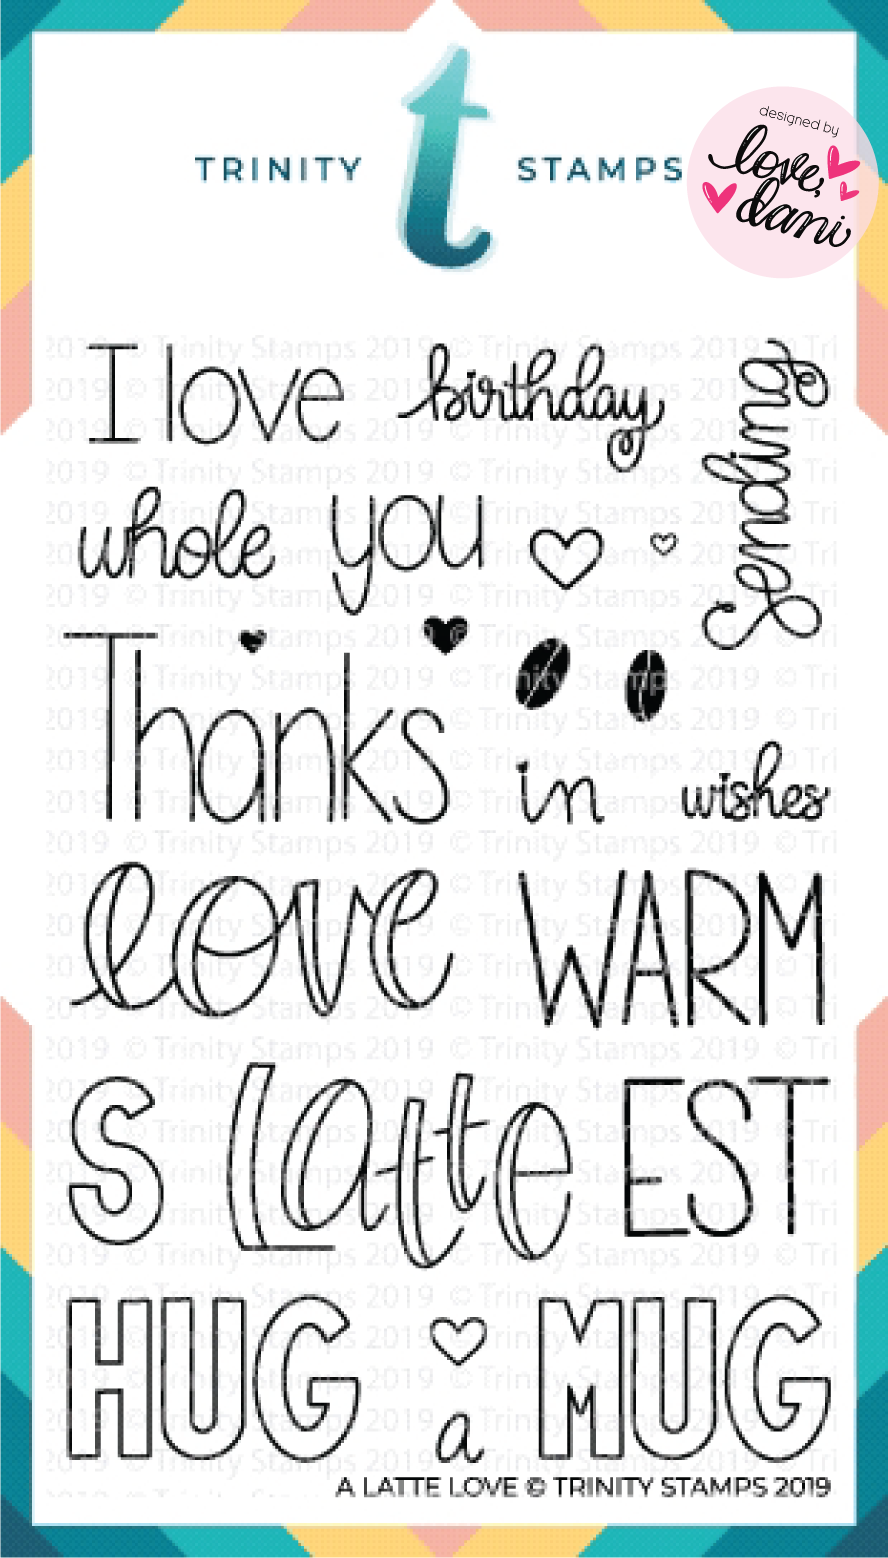 TRINITY t STAMPS
designed by
love,
dani
I love
birthday
sending
whole
you
Thanks
in
wishes
love
WARM
S
Latte
EST
HUG
a
MUG
A LATTE LOVE © TRINITY STAMPS 2019
2019 © Trinity Stamps 2019 © Trinity Stamps 2019 © Tri